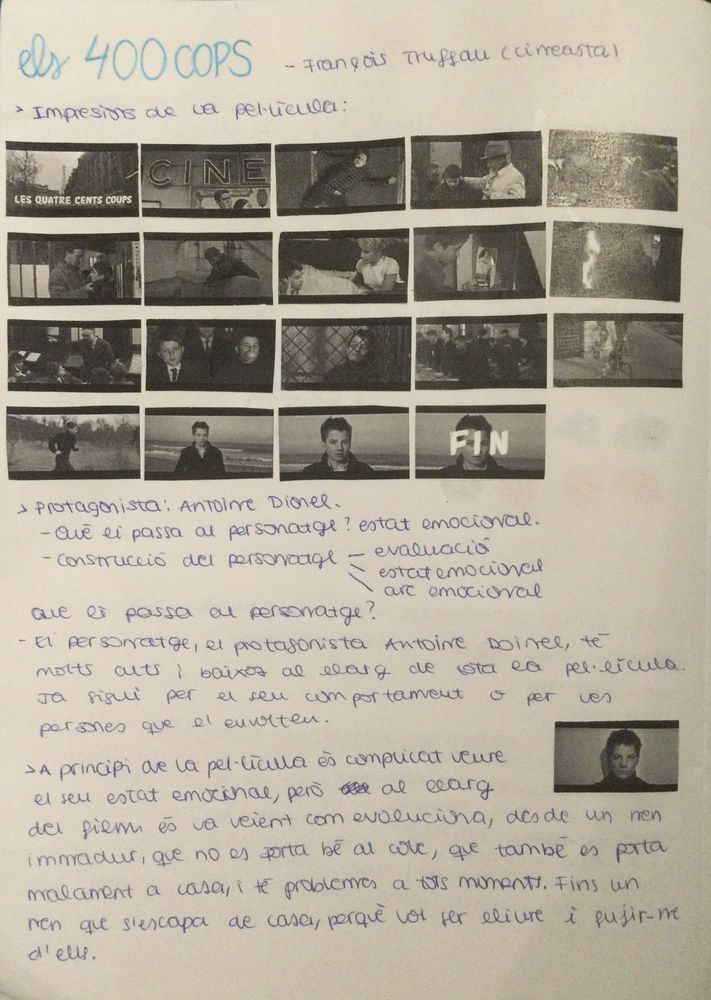 els 400 COPS - François Truffau (cineasta)
> Impresions de la pel·lícula:
LES QUATRE CENTS COUPS
CINE
FIN
> Protagonista: Antoine Dionel.
- Què el passa al personatge? estat emocional.
- Construcció del personatge - evaluació
estat emocional
arc emocional
Que el passa al personatge?
- El personatge, el protagonista Antoine Doinel, té
molts alts i baixos al llarg de tota la pel·lícula.
Ja sigui per el seu comportament o per les
persones que el envolten.
> A principi de la pel·lícula és complicat veure
el seu estat emocional, però al llarg
del film és va veient com evoluciona, desde un nen
immadur, que no es porta bé al cole, que també es porta
malament a casa, i té problemes a tots moments. Fins un
nen que s'escapa de casa, perquè vol ser lliure i fugir-ne
d'ells.